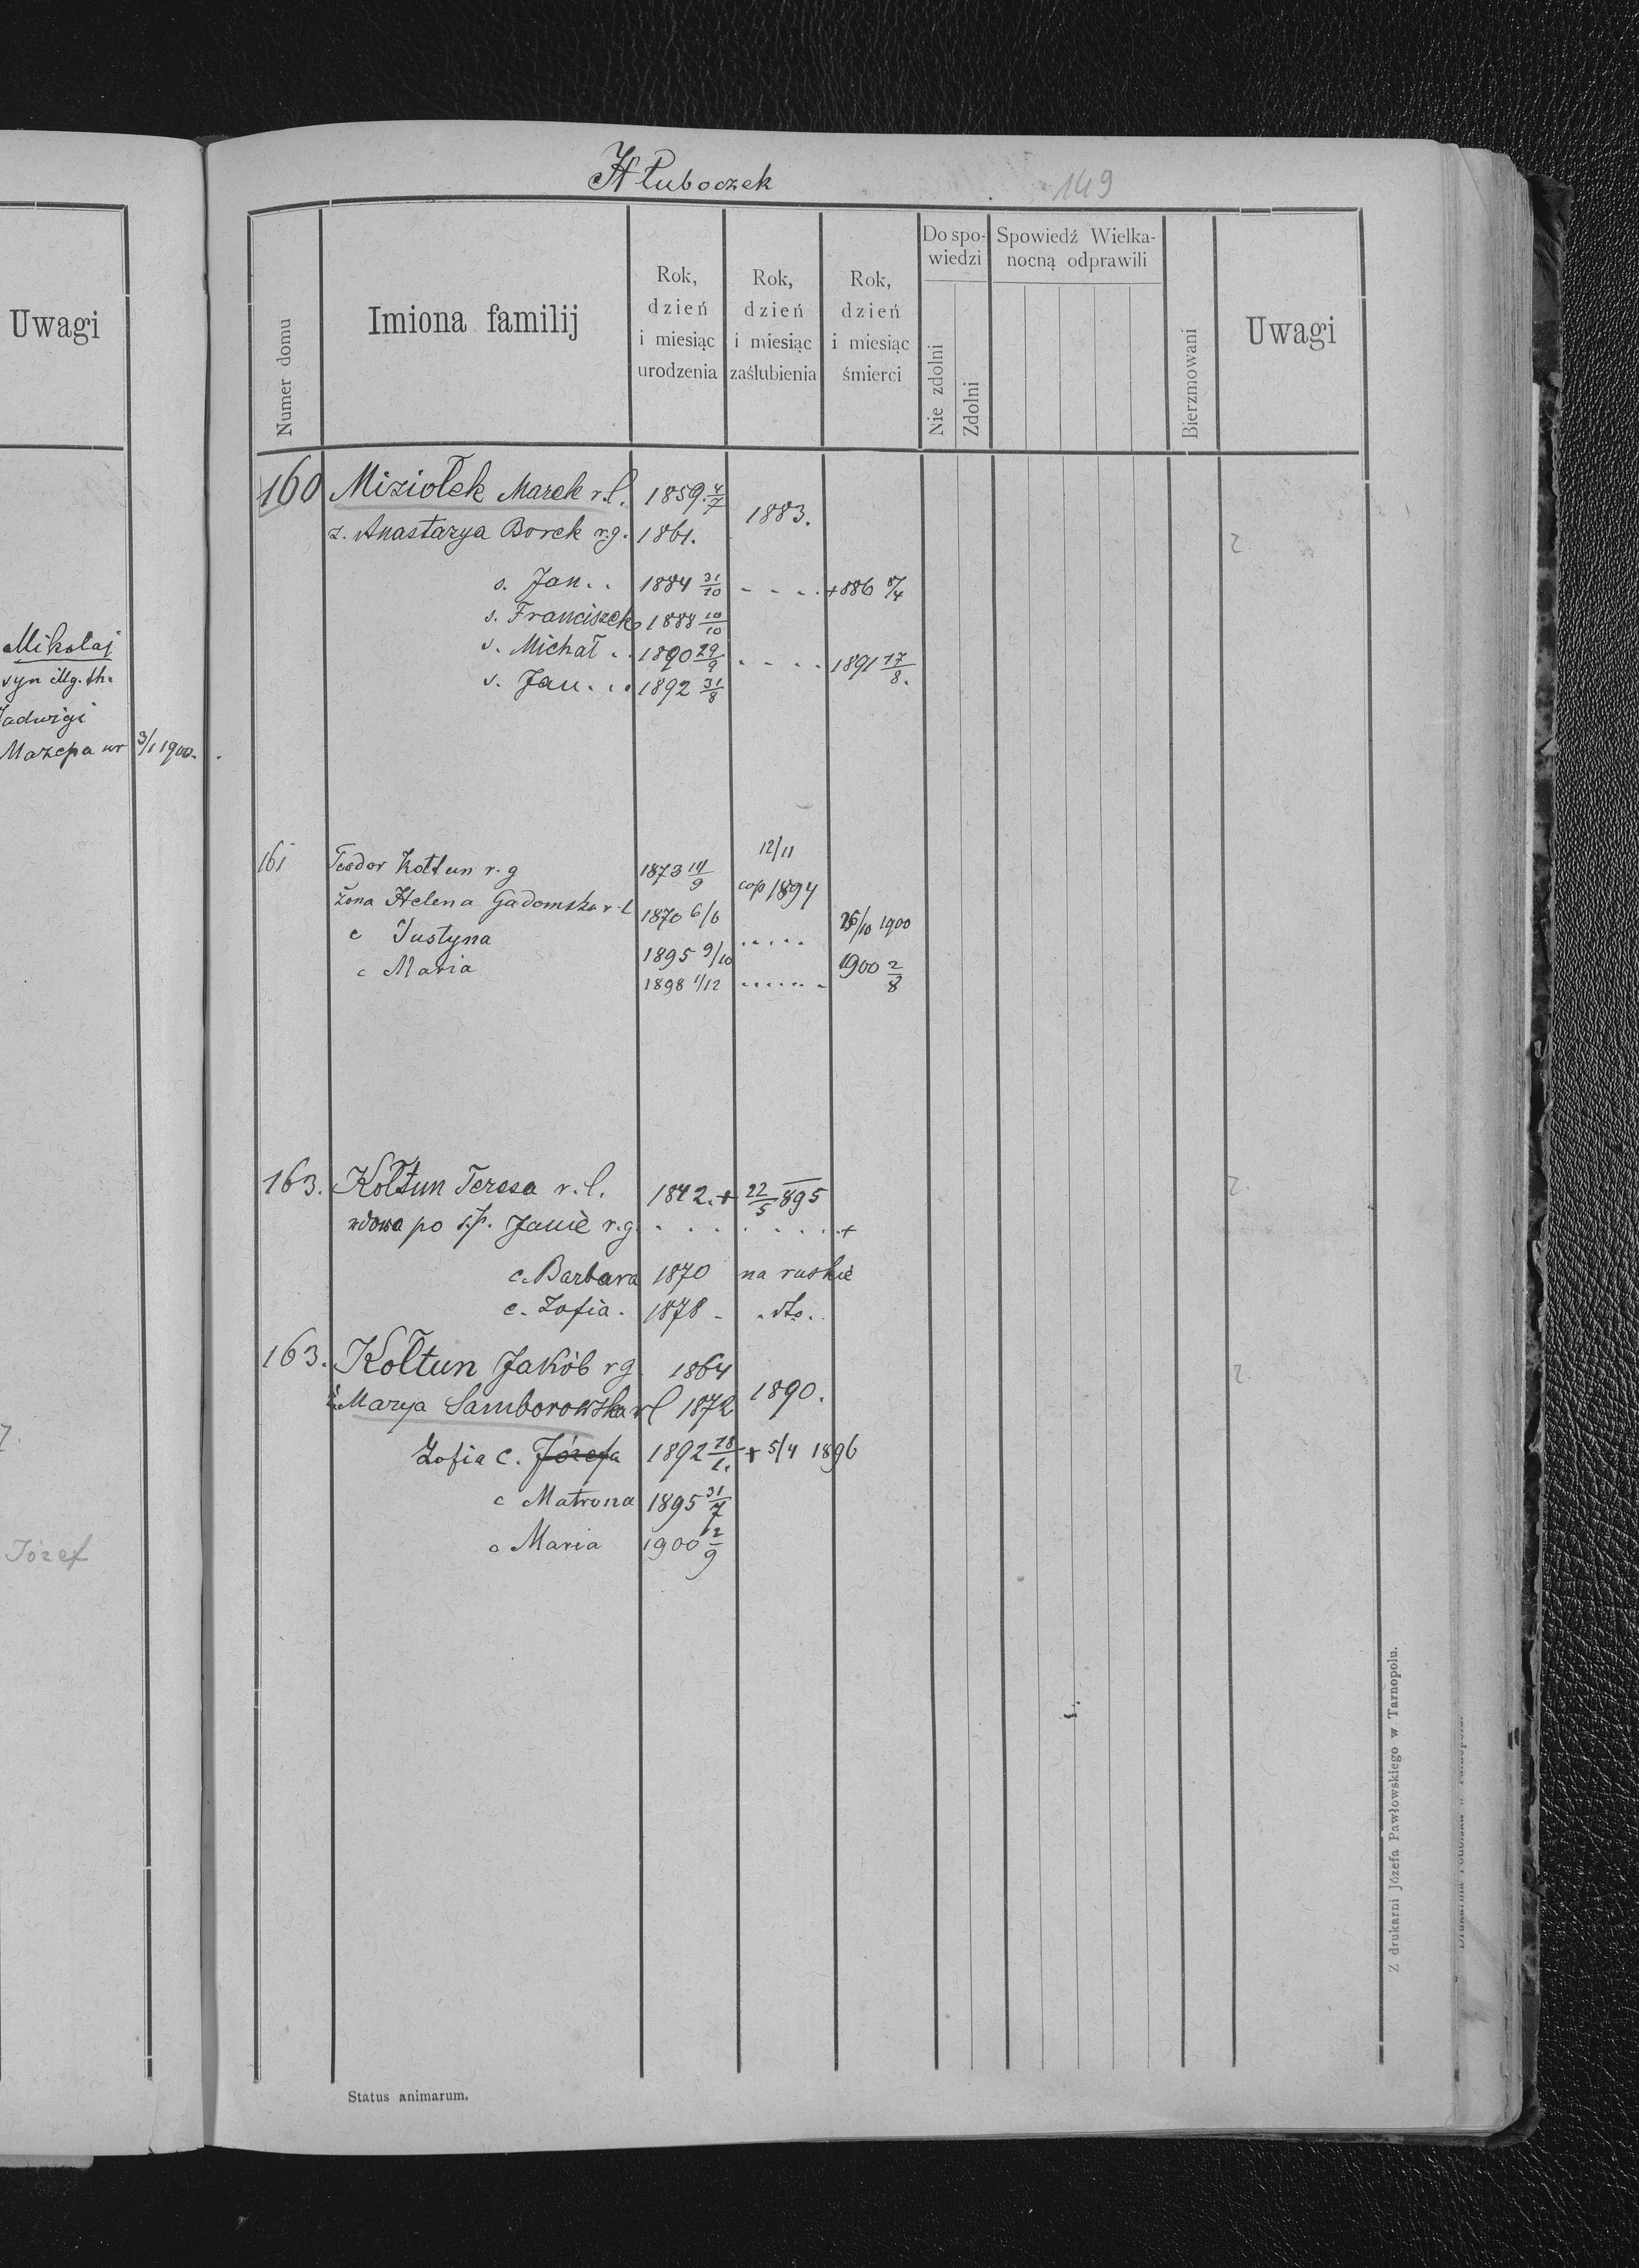 Uwagi
Mikołaj
syn Mg. th.
Jadwigi
Mazepa ur 3/1 1900.
Józef
Hłuboczek
149
Numer domu
Imiona familij
Rok,
dzień
i miesiąc
urodzenia
Rok,
dzień
i miesiąc
zaślubienia
Rok,
dzień
i miesiąc
śmierci
Do spo-
wiedzi
Nie zdolni
Zdolni
Spowiedź Wielka-
nocną odprawili
Bierzmowani
Uwagi
160 Miziołek Marek r.l. 1859. 4/7 1883.
z. Anastazya Borek r.g. 1861.
s. Jan . . 1884 31/10 - - - . +886 8/4
s. Franciszek 1888 10/10
s. Michał . . 1890 29/9 . - - - . 1891 17/8.
s. Jan . . . 1892 31/8
161 Teodor Kołtun r.g 1873 14/9 12/11 cop 1894
żona Helena Gadomska r.l 1870 6/6
c Justyna 1895 9/10 ..... 26/10 1900
c Maria 1898 1/12 ...... 1900 2/8
163. Kołtun Teresa r.l. 1842. + 22/5 895
wdowa po ś.p. Janie r.g. . . . . . . . . +
c. Barbara 1870 na ruskie
c. Zofia. 1878 - . dto.
163. Kołtun Jakób rg 1864 1890.
ż. Marya Samborowska rl 1872
Zofia c. Józefa 1892 18/1. + 5/4 1896
c Matrona 1895 31/7
c Maria 1900 12/9
Status animarum.
Z drukarni Józefa Pawłowskiego w Tarnopolu.